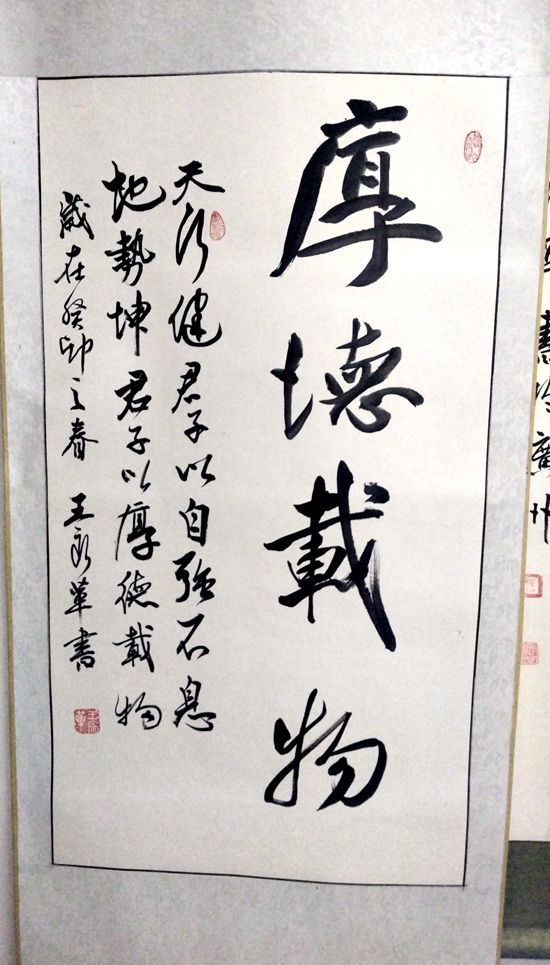 厚德载物
天行健君子以自强不息
地势坤君子以厚德载物
岁在癸卯之春 王永革书